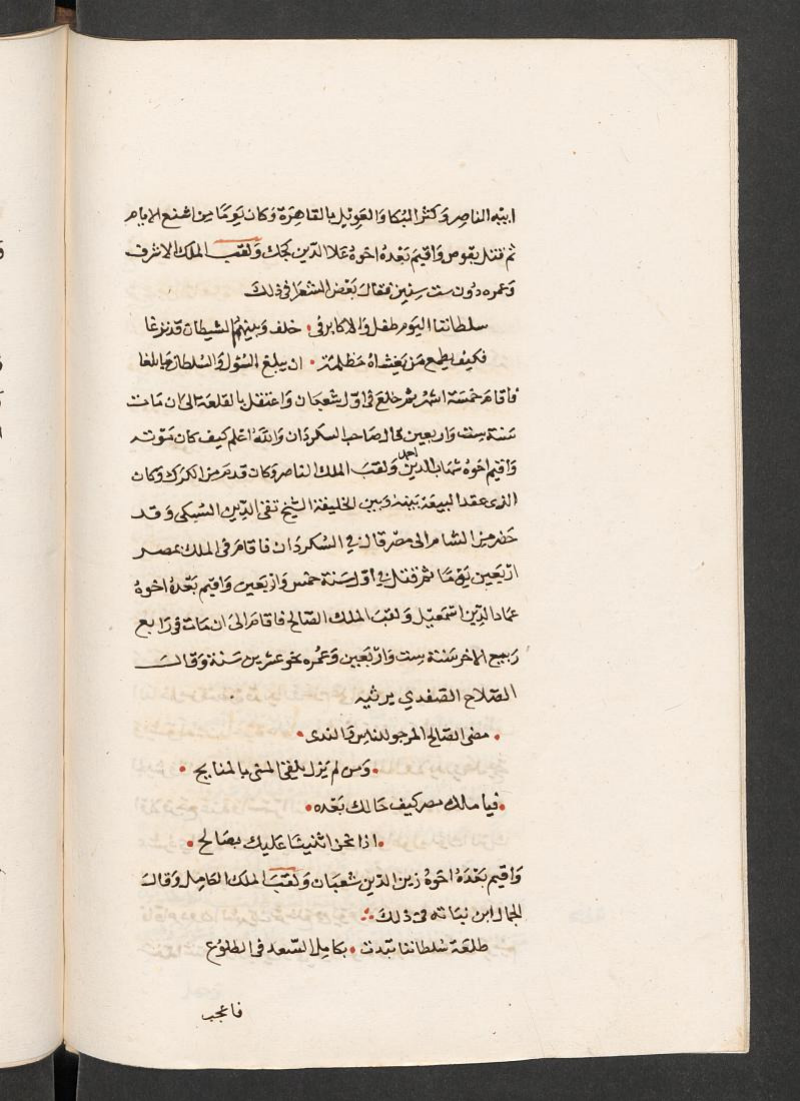 ابنه الناصر وكثر البكا والعويل بالقاهرة وكان يوما من اشنع الايام
ثم قتل بقوص واقيم بعده اخوه علا الدين كجك ولقب الملك الاشرف
وعمره دون ست سنين فقال بعض الشعرا في ذلك
سلطاننا اليوم طفل والاكابر في • خلف وبينهم الشيطان قد نزغا
فكيف يطمع من يغشاه مظلمة • ان يبلغ السول والسلطان ما بلغا
فاقام خمسة اشهر ثم خلع في اول شعبان واعتقل بالقلعة الى ان مات
سنة ست واربعين قال صاحب السكردان والله اعلم كيف كان موته
واقيم اخوه شهاب الدين احمد ولقب الملك الناصر وكان قدم من الكرك وكان
الذي عقد البيعة بينه وبين الخليفة الشيخ تقي الدين السبكي وقد
حضر من الشام الى مصر قال في السكردان فاقام في الملك بمصر
اربعين يوما ثم قتل في اول سنة خمس واربعين واقيم بعده اخوه
عماد الدين اسمعيل ولقب الملك الصالح فاقام الى ان مات في رابع
ربيع الاخر سنة ست واربعين وعمره نحو عشرين سنة وقال
الصلاح الصفدي يرثيه
• مضى الصالح المرجو للناس والندى •
• ومن لم يزل يلقى المنى بالمنايح •
• فيا ملك مصر كيف حالك بعده •
• اذا نحن اثنينا عليك بصالح •
واقيم بعده اخوه زين الدين شعبان ولقب الملك الكامل وقال
الجمال ابن نباته في ذلك
طلعة سلطاننا تبدت • بكامل السعد في الطلوع
فاعجب